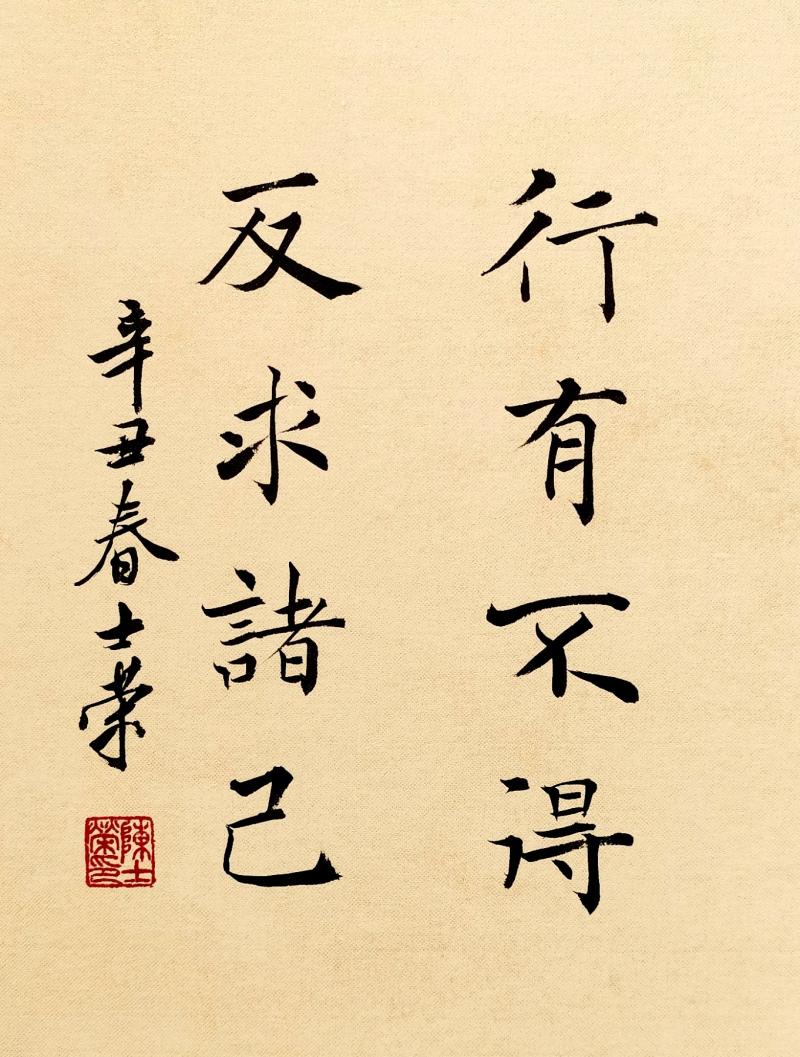 行有不得
反求諸己
辛丑春士荣
陳士榮印